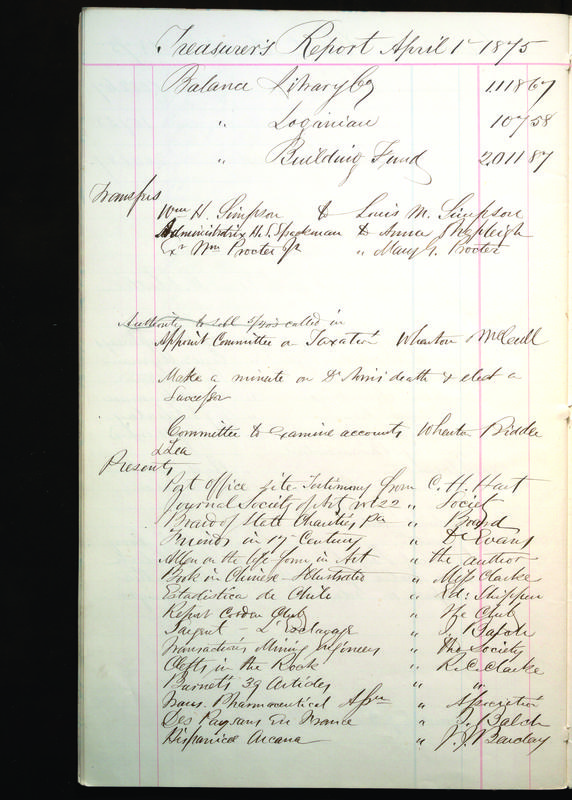 Treasurer's Report April 1st 1875
Balance Library Co 1,118 67
" Loganian 107 58
" Building Fund 2,011 87
Transfers
Wm H. Simpson to Louis M. Simpson
Administratrix H. S. Speakman to Anna Shipleigh
Exr Wm Procter Jr " Mary G. Procter
Authority to sell 5/20s called in
Appoint Committee on Taxation Wharton McCall
Make a minute on Dr death & elect a
Successor
Committee to examine accounts Wharton Biddle
& Lea
Presents
Post Office site Testimony from C. H. Hart
Journal Society of Art vol 22 " Society
Board of State Charities Pa " Board
Friends in 17 Century " Dr Evans
Allen on the life form in Art " the author
Book in Chinese Illustrated " Miss Clarke
Estadistica de Chile " Ed: Shippen
Report Cobden Club " The Club
Sargent L'Esclavage " T. Balch
Transactions Mining Engineers " the Society
Clefts in the Rock " R. C. Clarke
Burnets 39 Articles " "
Trans. Pharmaceutical Assn " Association
Les Paysans En France " T. Balch
Hispanica Arcana " J. J. Barclay